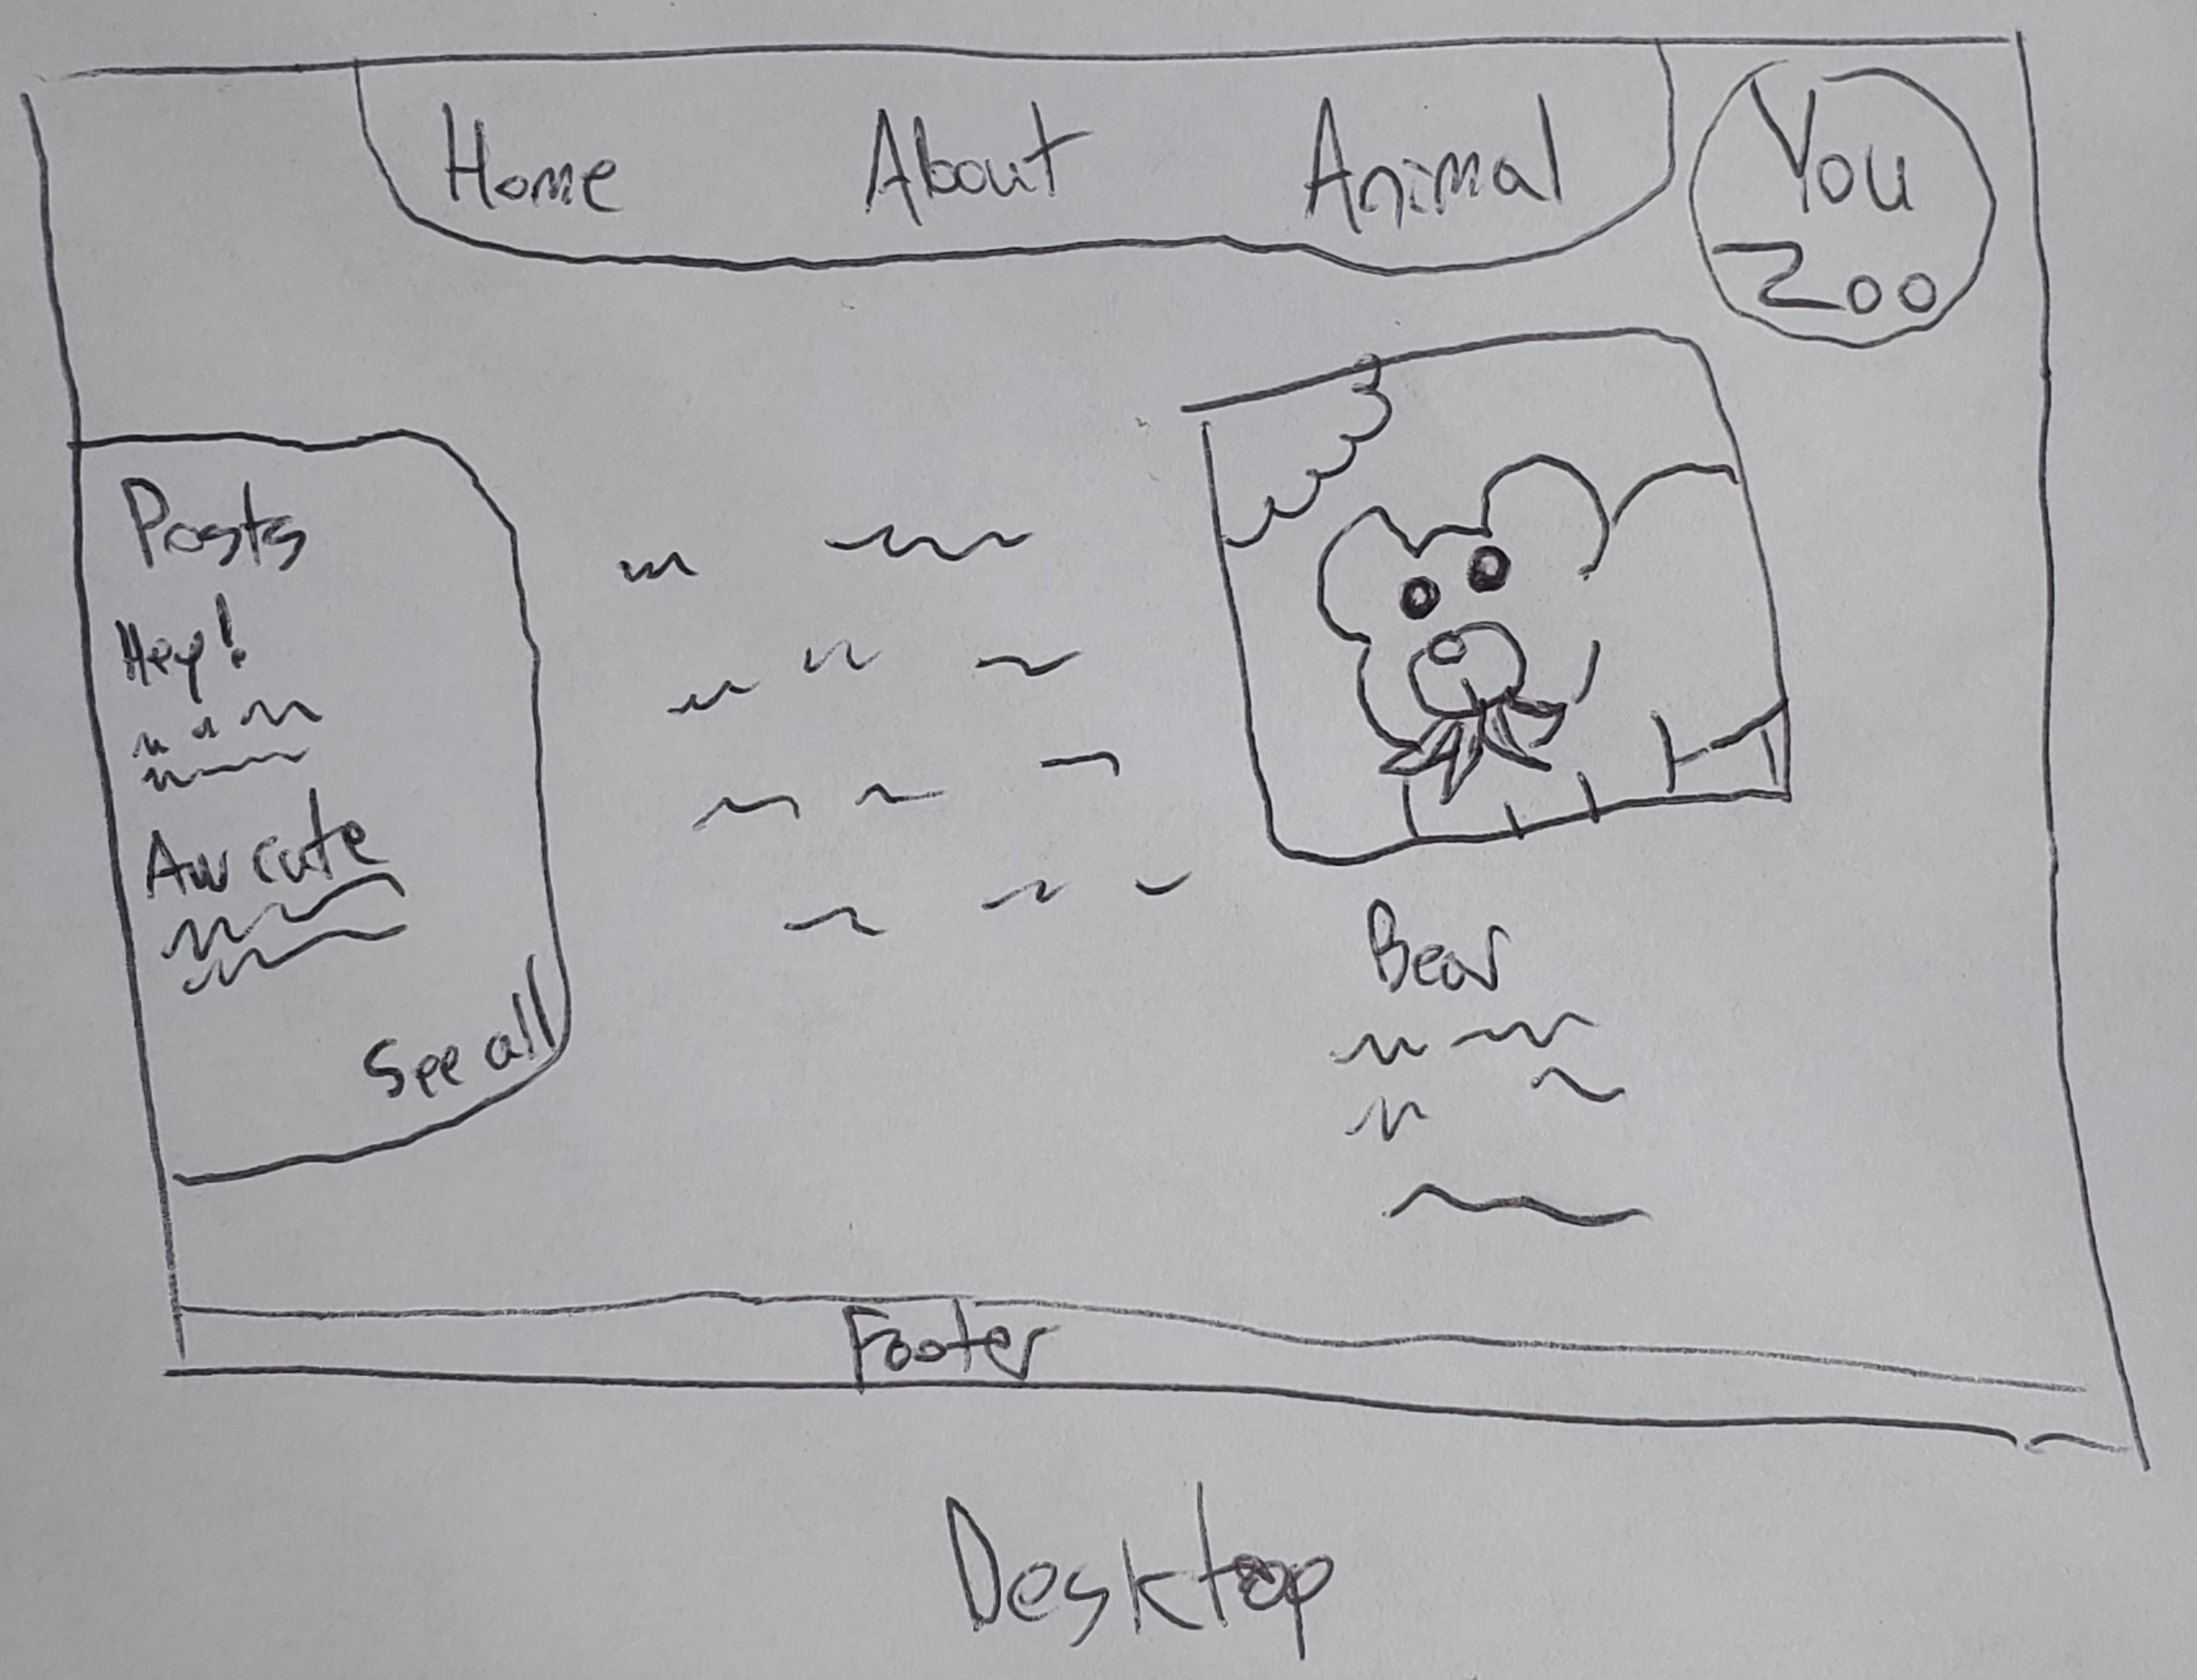 Home About Animal
You
Zoo
Posts
Hey!
Aw cute
See all
Bear
Footer
Desktop